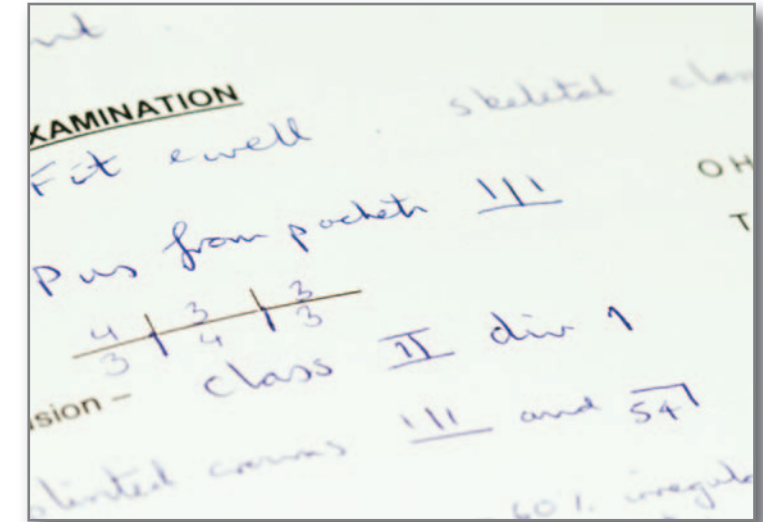 EXAMINATION
Fit & well . skeletal clas
OH
Pus from pocket 1|1
T
4 | 3 | 3
3 | 4 | 3
sion – class II div 1
splinted crowns 1|1 and 54
60% irregula